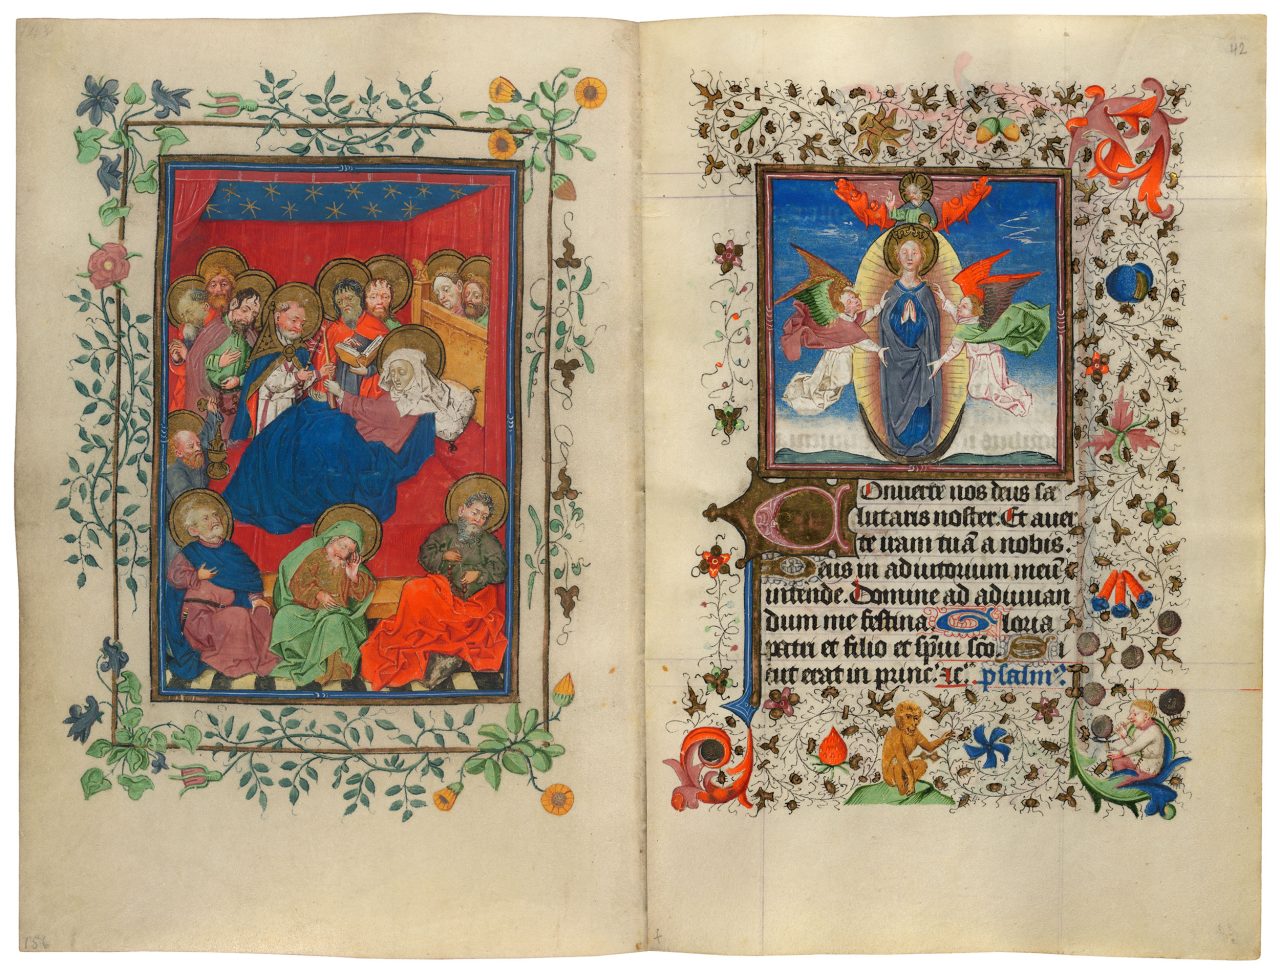 42
Conuerte nos deus sa
lutaris noster. Et auer
te iram tuā a nobis.
Deus in adiutorium meū
intende. Domine ad adiuuan
dum me festina. Gloria
patri et filio et sp̄ui sc̄o. Si
cut erat in princ. Ac. psalm.
156